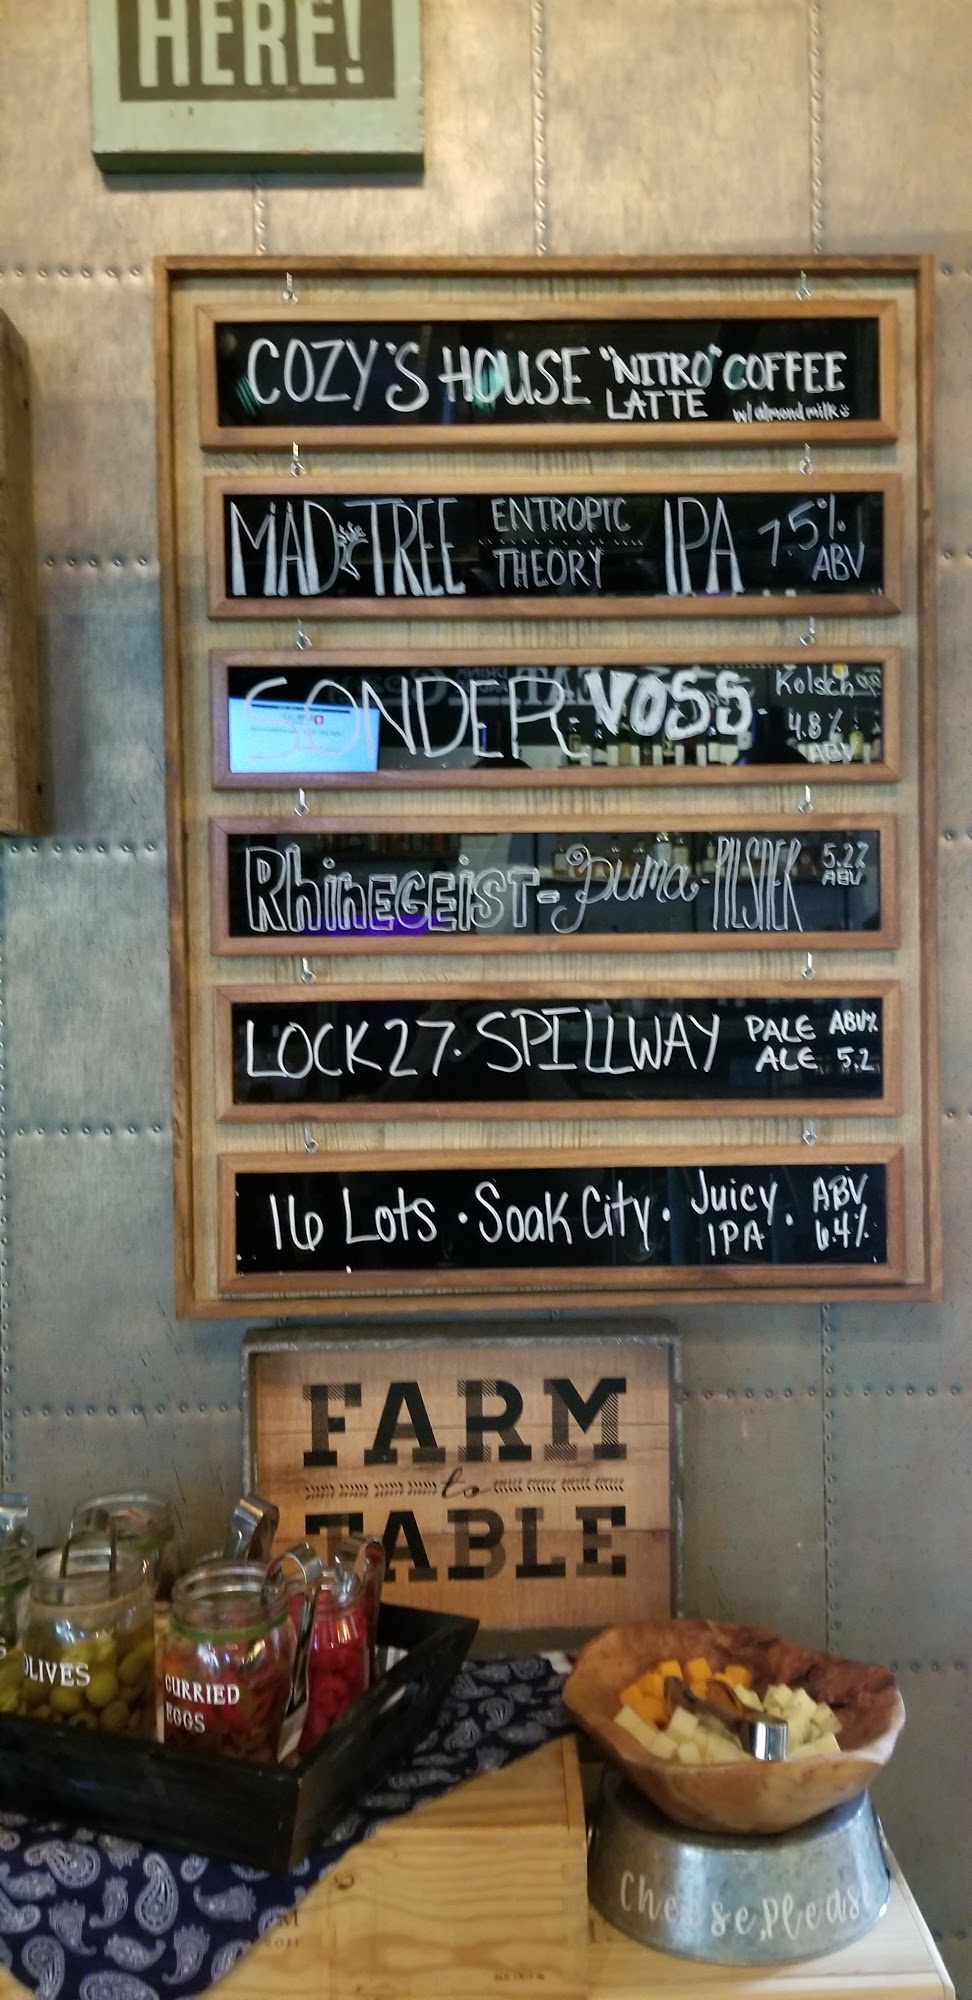 HERE!
COZY'S HOUSE "NITRO" COFFEE
LATTE w/ almond milk
MADTREE ENTROPIC THEORY IPA 7.5% ABV
SONDER. VOSS- Kolsch 4.8% ABV
RhineGEIST- Puma- PILSNER 5.2% ABV
LOCK 27. SPILLWAY PALE ALE ABV% 5.2
16 Lots · Soak City · Juicy IPA · ABV 6.4%
FARM
to
TABLE
OLIVES
CURRIED
EGGS
Cheese, Please